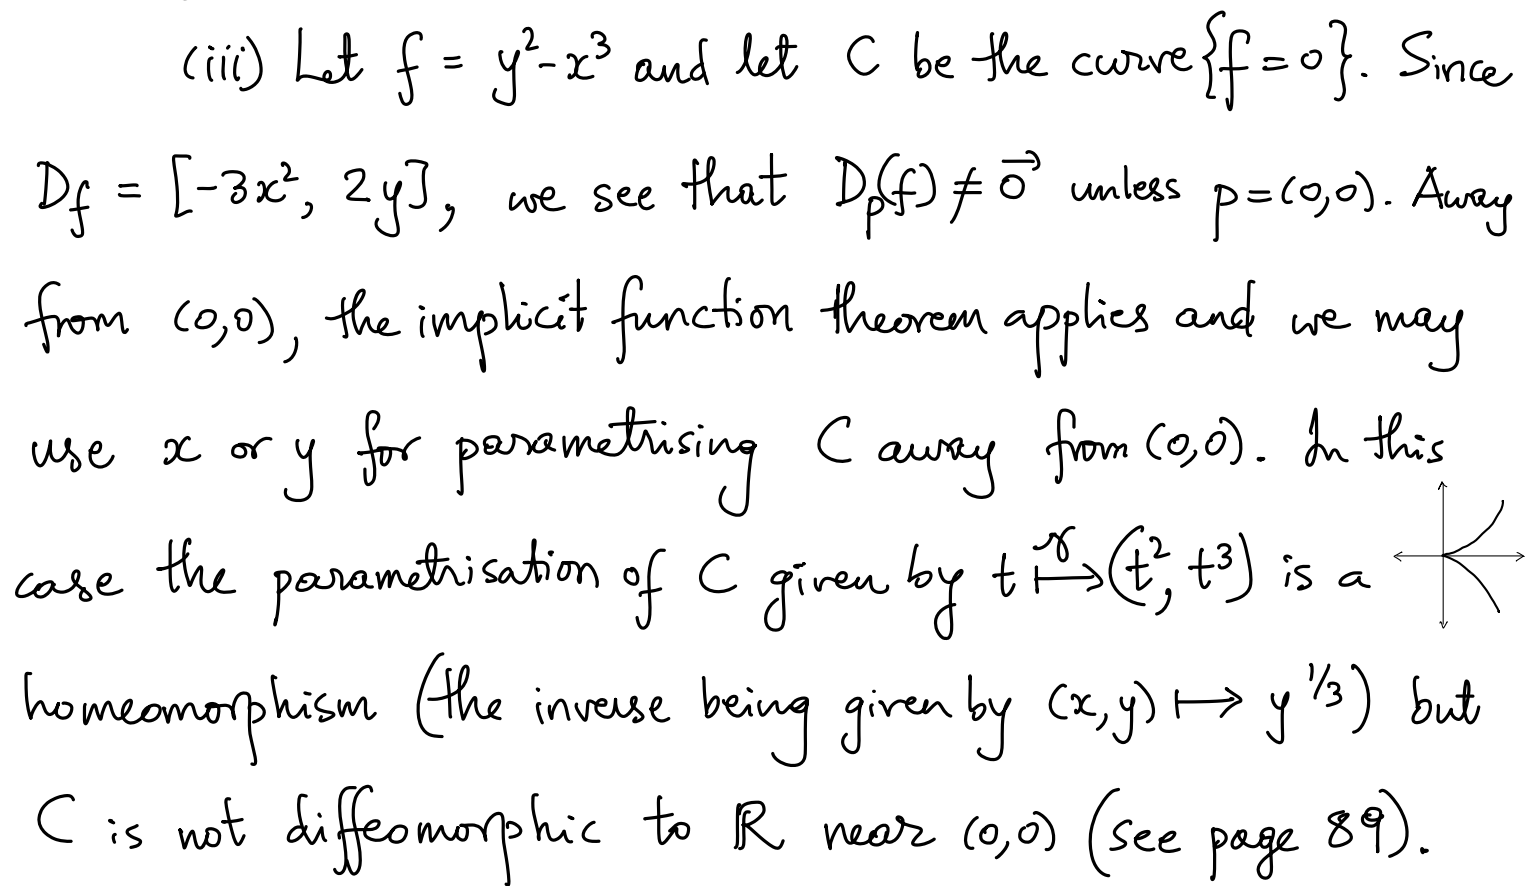 (iii) Let f = y²-x³ and let C be the curve {f=0}. Since
Df = [-3x², 2y], we see that Dₚ(f) ≠ 0⃗ unless p=(0,0). Away
from (0,0), the implicit function theorem applies and we may
use x or y for parametrising C away from (0,0). In this
case the parametrisation of C given by t ↦^γ (t², t³) is a
homeomorphism (the inverse being given by (x,y) ↦ y^{1/3}) but
C is not diffeomorphic to ℝ near (0,0) (see page 89).